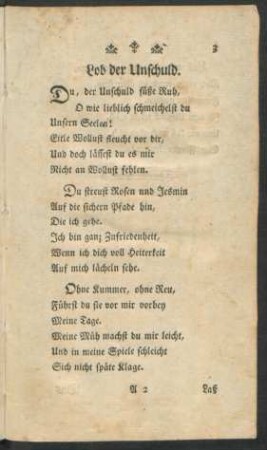 3
Lob der Unschuld.
Du, der Unschuld süße Ruh,
O wie lieblich schmeichelst du
Unsern Seelen!
Eitle Wollust fleucht vor dir,
Und doch lässest du es mir
Nicht an Wollust fehlen.
Du streust Rosen und Jesmin
Auf die sichern Pfade hin,
Die ich gehe.
Ich bin ganz Zufriedenheit,
Wenn ich dich voll Heiterkeit
Auf mich lächeln sehe.
Ohne Kummer, ohne Reu,
Führst du sie vor mir vorbey
Meine Tage.
Meine Müh machst du mir leicht,
Und in meine Spiele schleicht
Sich nicht späte Klage.
A 2 Laß